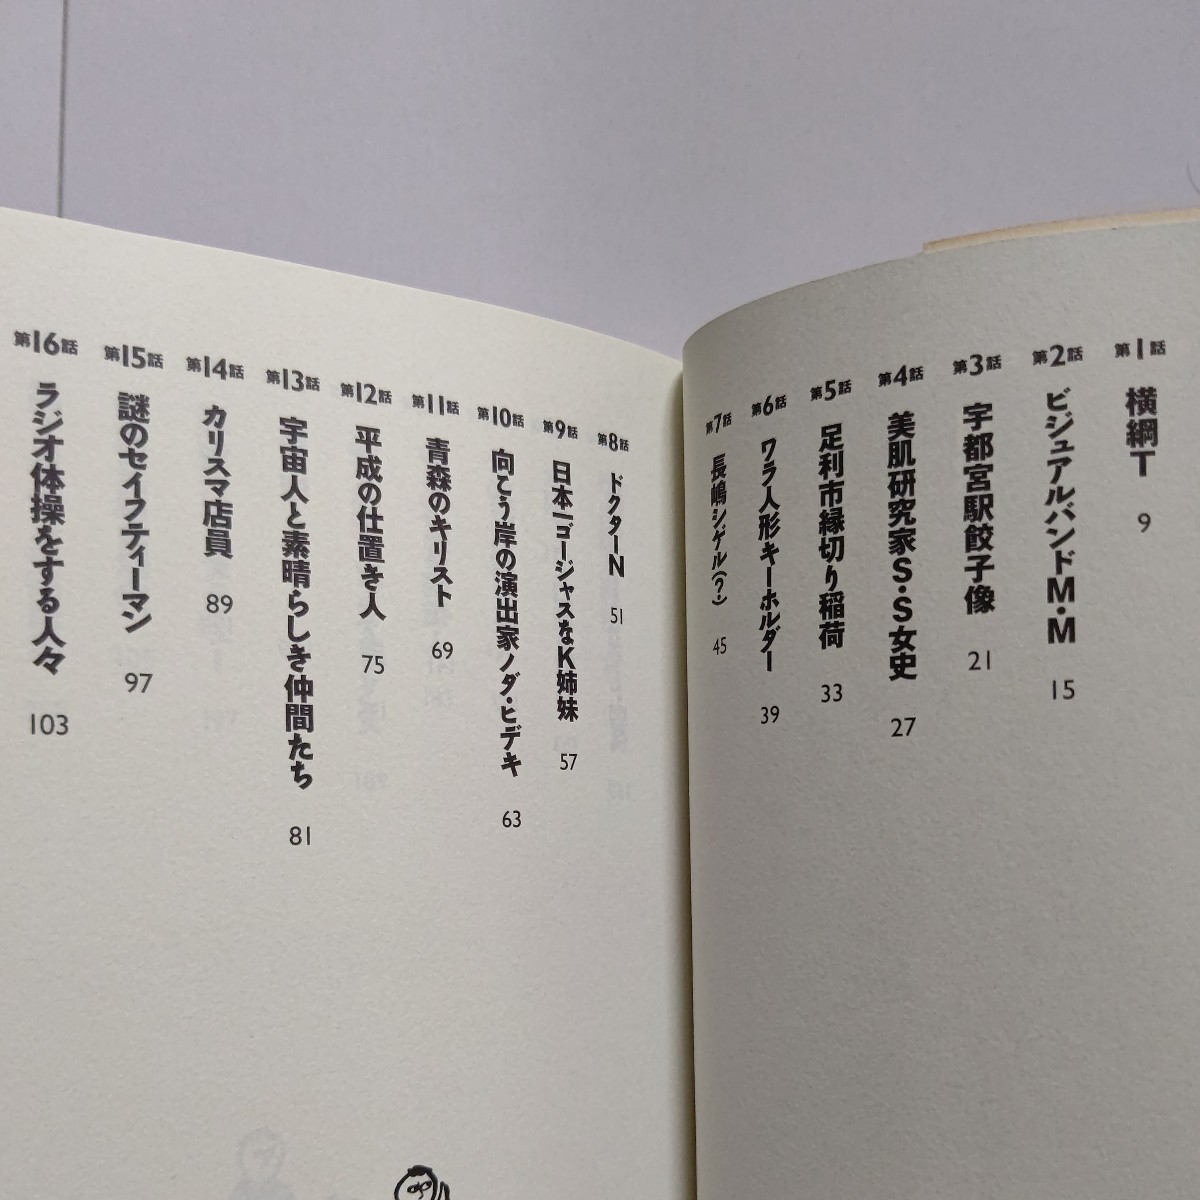 第1話 横綱T 9
第2話 ビジュアルバンドM・M 15
第3話 宇都宮駅餃子像 21
第4話 美肌研究家S・S女史 27
第5話 足利市縁切り稲荷 33
第6話 ワラ人形キーホルダー 39
第7話 長嶋シゲル(?) 45
第8話 ドクターN 51
第9話 日本一ゴージャスなK姉妹 57
第10話 向こう岸の演出家ノダ・ヒデキ 63
第11話 青森のキリスト 69
第12話 平成の仕置き人 75
第13話 宇宙人と素晴らしき仲間たち 81
第14話 カリスマ店員 89
第15話 謎のセイフティーマン 97
第16話 ラジオ体操をする人々 103